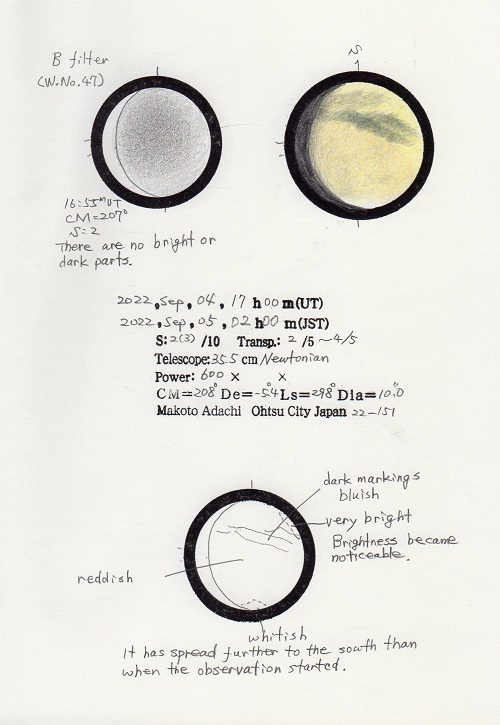 B filter
(W.No.47)
S
16:55ᵐUT
CM=207°
S=2
There are no bright or
dark parts.
2022, Sep, 04, 17 h 00 m(UT)
2022, Sep, 05, 02 h 00 m(JST)
S: 2(3) /10 Transp.: 2 /5 ~4/5
Telescope: 35.5 cm Newtonian
Power: 600 × ×
CM=208° De=-5.4° Ls=298° Dia=10.0"
Makoto Adachi Ohtsu City Japan 22-151
dark markings
bluish
very bright
Brightness became
noticeable.
reddish
whitish
It has spread further to the south than
when the observation started.